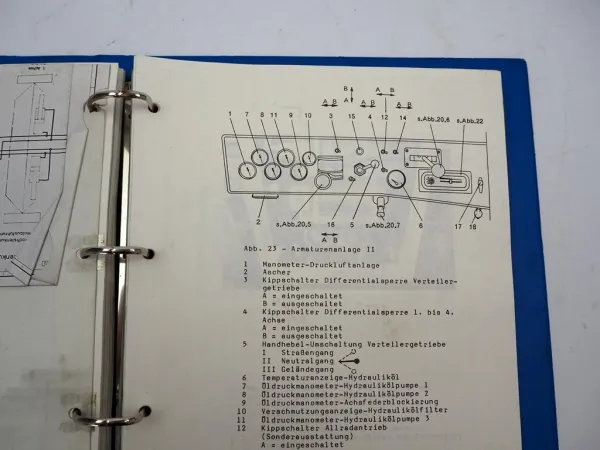 B
A B A A B
3 15 4 12 14 s.Abb.20,6 s.Abb.22
A B
1 7 8 11 9 10
2 s.Abb.20,5 16 5 s.Abb.20,7 6 17 18
A B
Abb. 23 - Armaturenanlage II
1 Manometer-Druckluftanlage
2 Ascher
3 Kippschalter Differentialsperre Verteiler-
getriebe
A = eingeschaltet
B = ausgeschaltet
4 Kippschalter Differentialsperre 1. bis 4.
Achse
A = eingeschaltet
B = ausgeschaltet
5 Handhebel-Umschaltung Verteilergetriebe
I Straßengang
II Neutralgang
III Geländegang
6 Temperaturanzeige-Hydrauliköl
7 Öldruckmanometer-Hydraulikölpumpe 1
8 Öldruckmanometer-Hydraulikölpumpe 2
9 Öldruckmanometer-Achsfederblockierung
10 Verschmutzungsanzeige-Hydraulikfilter
11 Öldruckmanometer-Hydraulikölpumpe 3
12 Kippschalter Allradantrieb
(Sonderausstattung)
A = eingeschaltet